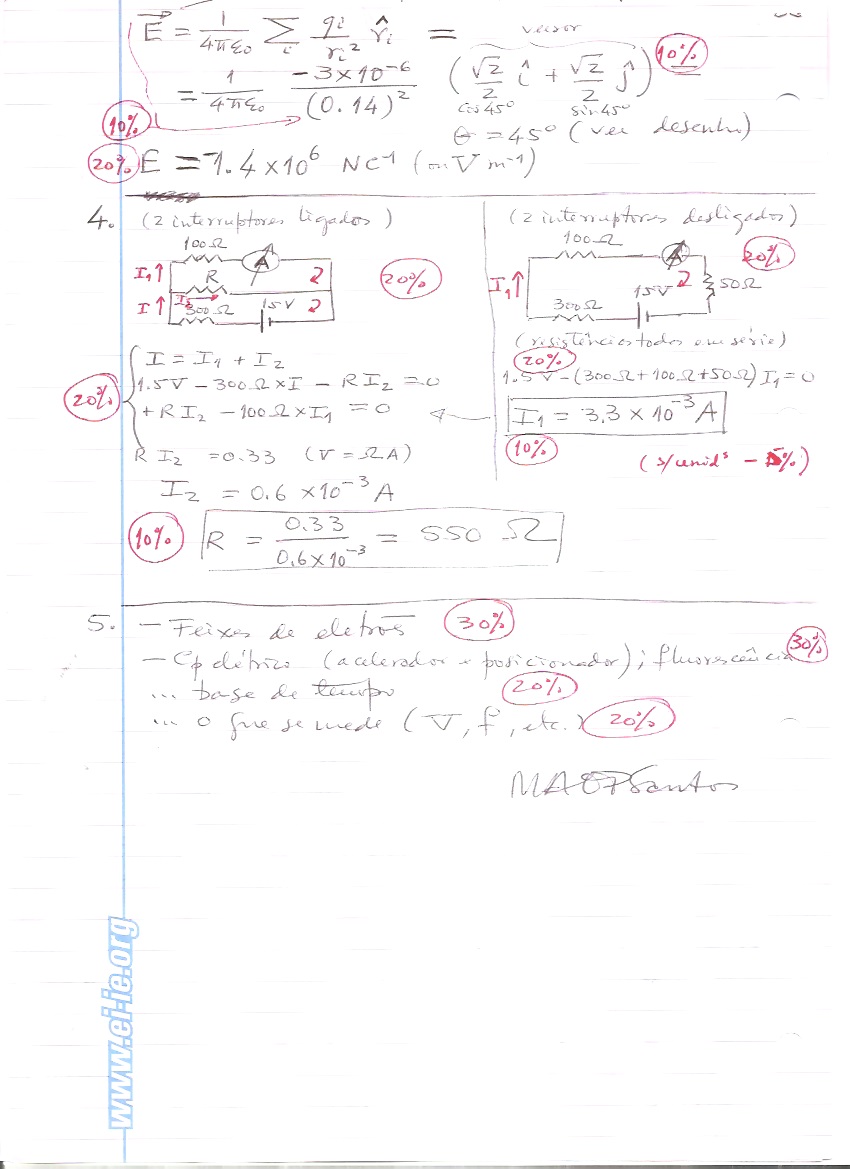 E⃗ = 1/4πε₀ Σᵢ qᵢ/rᵢ² r̂ᵢ =
versor
= 1/4πε₀ −3×10⁻⁶/(0.14)² (√2/2 î + √2/2 ĵ) 10%
cos45° sin45°
10%
θ = 45° (ver desenho)
20% E = 1.4×10⁶ NC⁻¹ (ou V m⁻¹)
4. (2 interruptores ligados)
100Ω
A
I₁
R
20%
I
I₂
300Ω
15V
20%
{ I = I₁ + I₂
1.5V − 300Ω×I − RI₂ = 0
+ RI₂ − 100Ω×I₁ = 0
RI₂ = 0.33 (V = ΩA)
I₂ = 0.6 ×10⁻³ A
10% R = 0.33/0.6×10⁻³ = 550 Ω
(2 interruptores desligados)
100Ω
A
20%
I₁
15V
50Ω
300Ω
(resistências todas em série)
20%
1.5V − (300Ω+100Ω+50Ω) I₁ = 0
I₁ = 3.3 × 10⁻³ A
10%
(s/unidˢ − 5%)
5. − Feixes de eletrões 30%
− Cp elétrico (acelerador e posicionador); fluorescência 30%
... base de tempo 20%
... o que se mede (V, f, etc.) 20%
www.ei-ie.org